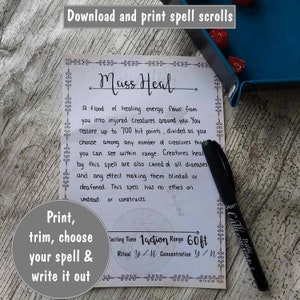 Download and print spell scrolls
Mass Heal
A flood of healing energy flows from
you into injured creatures around you. You
restore up to 700 hit points, divided as you
choose among any number of creatures that
you can see within range. Creatures healed
by this spell are also cured of all diseases
and any effect making them blinded or
deafened. This spell has no effect on
undead or constructs.
Casting Time 1 action Range 60ft
Ritual Y / N Concentration Y / N
Print,
trim, choose
your spell &
write it out